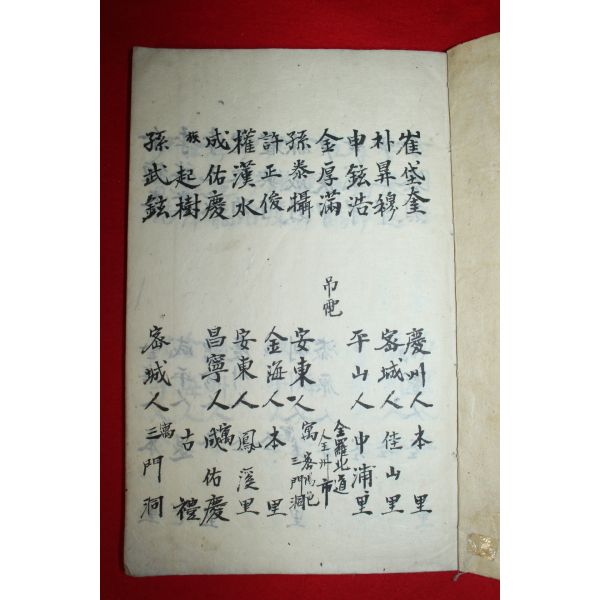 崔岱奎 慶州人 本里
朴昇穆 密城人 佳山里
申鉉浩 平山人 中浦里
金厚滿 弔電 全羅北道全州市
孫泰攝 安東人 寓 三門洞
許正俊 金海人 本里
權漢水 安東人 鳳溪里
成佑慶 昌寧人 寓 成佑慶
族 起樹 古禮
孫武鉉 密城人 寓三門洞